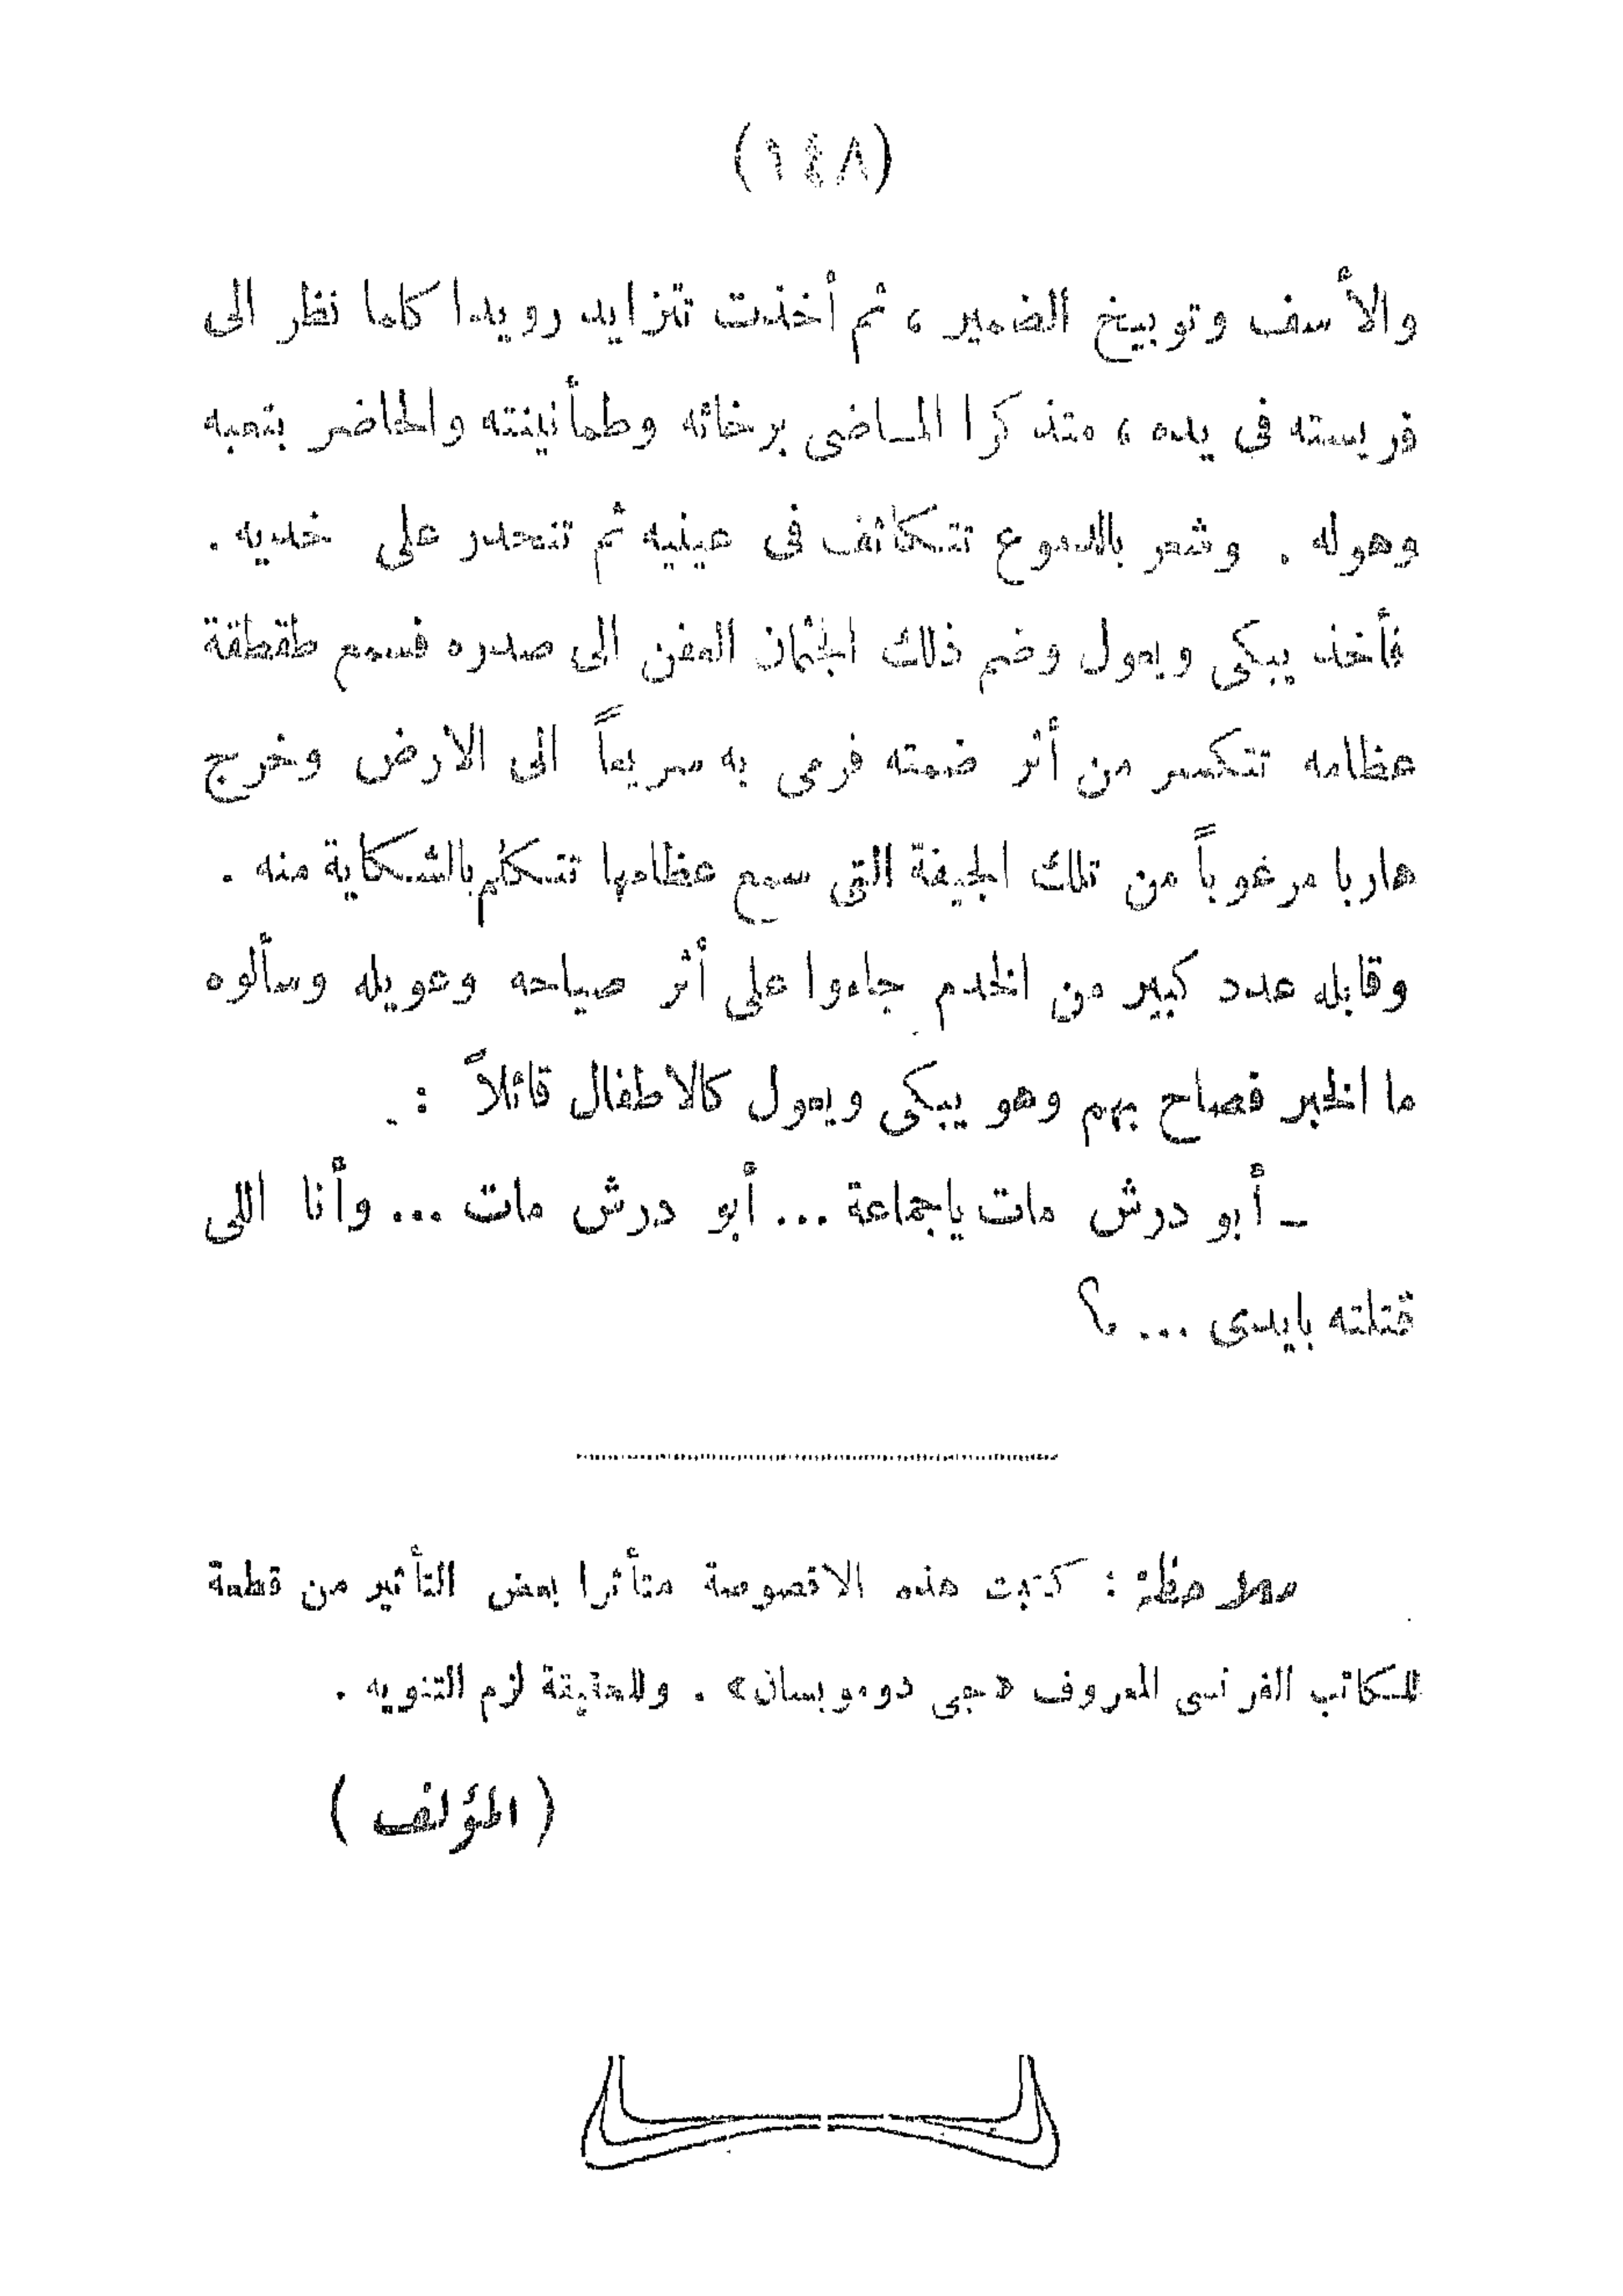 (١٤٨)
والأسف وتوبيخ الضمير ، ثم أخذت تتزايد رويدا كلما نظر الى
فريسته فى يده ، متذكرا الماضى برخائه وطمأنينته والحاضر بتعبه
وهوله . وشعر بالدموع تتكاثف فى عينيه ثم تنحدر على خديه .
فأخذ يبكى ويعول وضم ذلك الجثمان العفن الى صدره فسمع طقطقة
عظامه تتكسر من أثر ضمته فرمى به سريعاً الى الارض وخرج
هاربا مرغوباً من تلك الجيفة التى سمع عظامها تتكلم بالشكاية منه .
وقابله عدد كبير من الخدم جاءوا على أثر صياحه وعويله وسألوه
ما الخبر فصاح بهم وهو يبكى ويعول كالاطفال قائلاً :
ـ أبو درش مات ياجماعة ... أبو درش مات ... وأنا اللى
قتلته بايدى ... ؟
ملاحظة : كتبت هذه الاقصوصة متأثرا بعض التأثير من قطعة
للكاتب الفرنسى المعروف «جى دوموبسان» . وللحقيقة لزم التنويه .
( المؤلف )